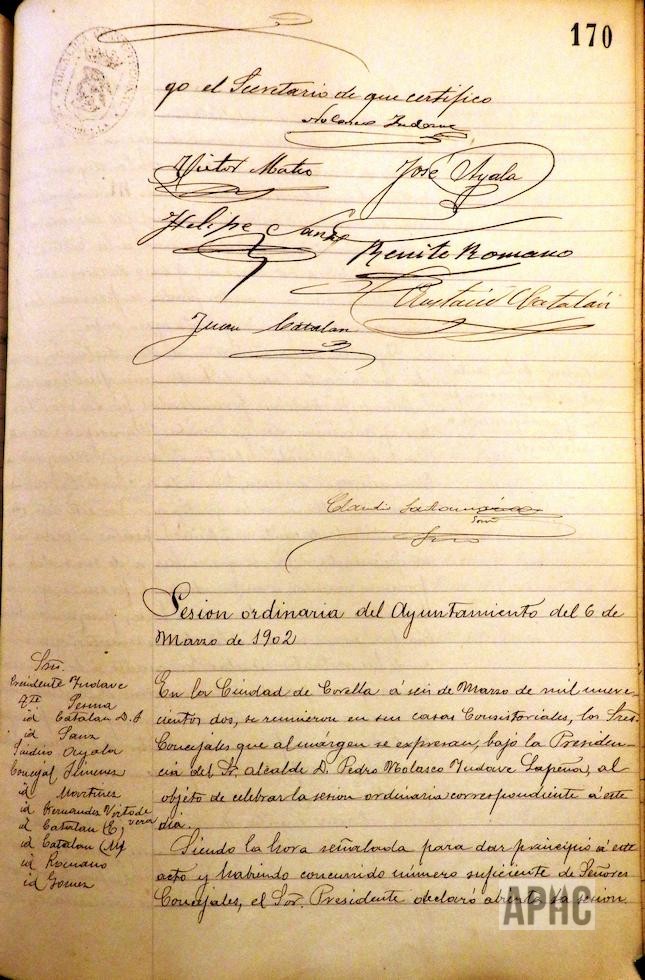 170
go el Secretario de que certifico
Nolasco Yudave
Victor Mateo
José Ayala
Felipe Sanz
Benito Romano
Catalán
Juan Catalan
Claudio
Sesion ordinaria del Ayuntamiento del 6 de
Marzo de 1902
Sres.
Presidente Yudave
Tte Sesma
id Catalan D. J
id Sanz
Sindico Ayala
Concejal Jimenez
id Martinez
id Hernandez Virto de
vera
id Catalan (E)
id Catalan (M)
id Romano
id Gomez
En la Ciudad de Corella á seis de Marzo de mil nueve-
cientos dos, se reunieron en sus casas Consistoriales, los Sres
Concejales que al márgen se expresan, bajo la Presiden-
cia del Sr. Alcalde D. Pedro Nolasco Yudave Lapeña, al
objeto de celebrar la sesion ordinaria correspondiente á este
dia.
Siendo la hora señalada para dar principio á este
acto y habiendo concurrido número suficiente de Señores
Concejales, el Sor. Presidente declaró abierta la sesion.
APHC